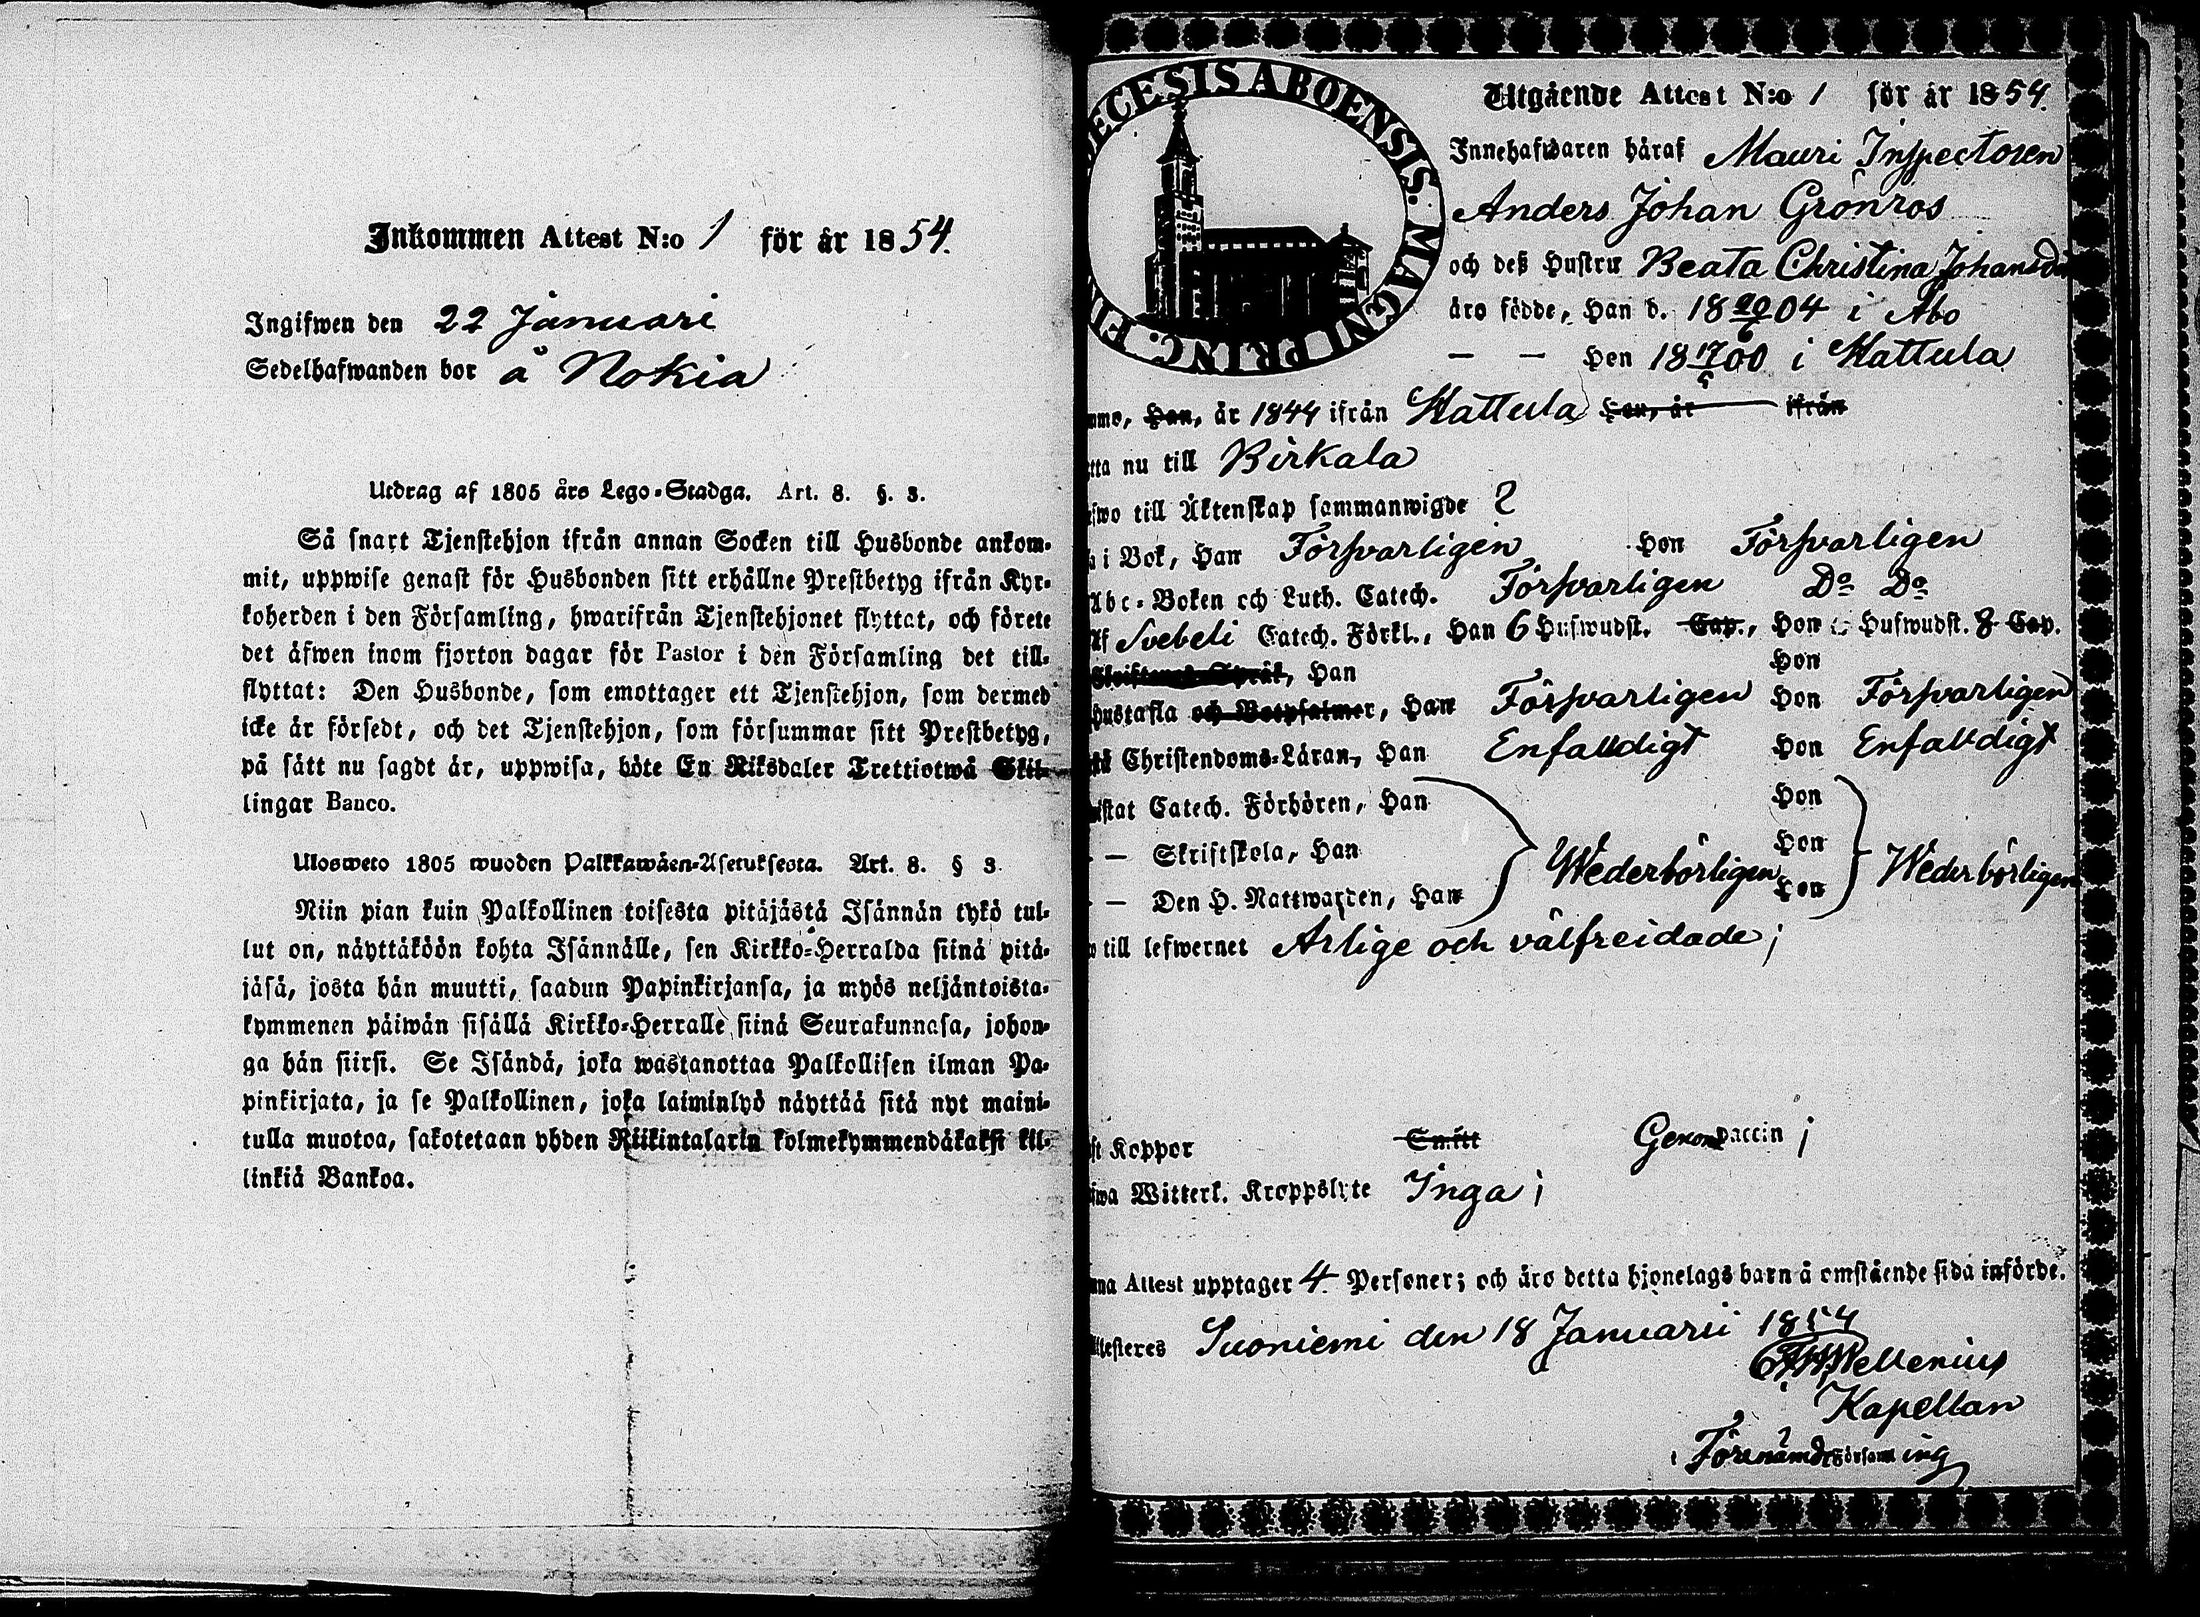 Inkommen Attest N:o 1 för år 1854.
Ingifwen den 22 Januari
Sedelhafwanden bor å Nokia
Utdrag af 1805 års Lego-Stadga. Art. 8. §. 3.
Så snart Tjenstehjon ifrån annan Socken till Husbonde ankom-
mit, uppwise genast för Husbonden sitt erhållne Prestbetyg ifrån Kyr-
koherden i den Församling, hwarifrån Tjenstehjonet flyttat, och förete
det äfwen inom fjorton dagar för Pastor i den Församling det till-
flyttat: Den Husbonde, som emottager ett Tjenstehjon, som dermed
icke är försedt, och det Tjenstehjon, som försummar sitt Prestbetyg,
på sätt nu sagdt är, uppwisa, böte En Riksdaler Trettiotwå Skil-
lingar Banco.
Ulosweto 1805 wuoden Palkkawäen-Asetuksesta. Art. 8. § 3.
Niin pian kuin Palkollinen toisesta pitäjästä Isännän tykö tul-
lut on, näyttäköön kohta Isännälle, sen Kirkko-Herralda siinä pitä-
jäsä, josta hän muutti, saadun Papinkirjansa, ja myös neljäntoista-
kymmenen päiwän sisällä Kirkko-Herralle siinä Seurakunnasa, johon-
ga hän siirsi. Se Isändä, joka wastanottaa Palkollisen ilman Pa-
pinkirjata, ja se Palkollinen, joka laiminlyö näyttää sitä nyt maini-
tulla muotoa, sakotetaan yhden Riikintalarin kolmekymmendäkaksi kil-
linkiä Bankoa.
DIECESIS ABOENSIS. MAGNI PRINC. FI
Utgående Attest N:o 1 för år 1854.
Innehafwaren häraf Mauri Inspectoren
Anders Johan Grönros
och deß Hustru Beata Christina Johansd:r
äro födde, Han d. 18 20/6 04 i Åbo
— — Hon 18 17/5 00 i Hattula
mmo, Han, år 1844 ifrån Hattula Hon, år ifrån
tta nu till Birkala
fwo till Äktenskap sammanwigde 2
i Bok, Han Försvarligen Hon Försvarligen
Abc-Boken och Luth. Catech. Försvarligen Do Do
Af Svebeli Catech. Förkl., Han 6 Hufwudst. Cap., Hon Hufwudst. 8 Cap.
Skriftenes Språk, Han Hon
Hustafla och Botpsalmer, Han Försvarligen Hon Försvarligen
Christendoms-Läran, Han Enfalldigt Hon Enfalldigt
istat Catech. Förhören, Han Hon
— Skriftskola, Han Wederbörligen Hon Wederbörligen
— Den H. Nattwarden, Han Hon
till lefwernet Ärlige och välfreidade;
Koppor Smitt Genom vaccin;
fwa Witterl. Kroppslyte Inga;
nna Attest upptager 4 Personer; och äro detta hjonelags barn å omstående sida införde.
ttesteres Suoniemi den 18 Januarii 1854
Kapellan
i Förenämde Församling